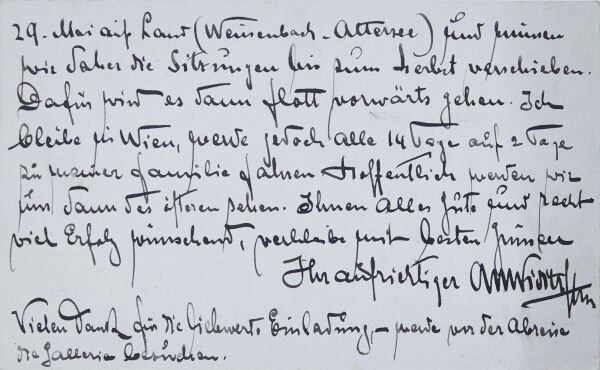 29. Mai auf Land (Weissenbach - Attersee) und müssen
wir daher die Sitzungen bis zum Herbst verschieben.
Dafür wird es dann flott vorwärts gehen. Ich
bleibe in Wien, werde jedoch alle 14 Tage auf 2 Tage
zu meiner Familie fahren. Hoffentlich werden wir
uns dann des öfteren sehen. Ihnen alles Gute und recht
viel Erfolg wünschend, verbleibe mit besten Grüssen
Ihr aufrichtiger
Vielen Dank für die liebwerte Einladung, - werde vor der Abreise
die Gallerie besuchen.